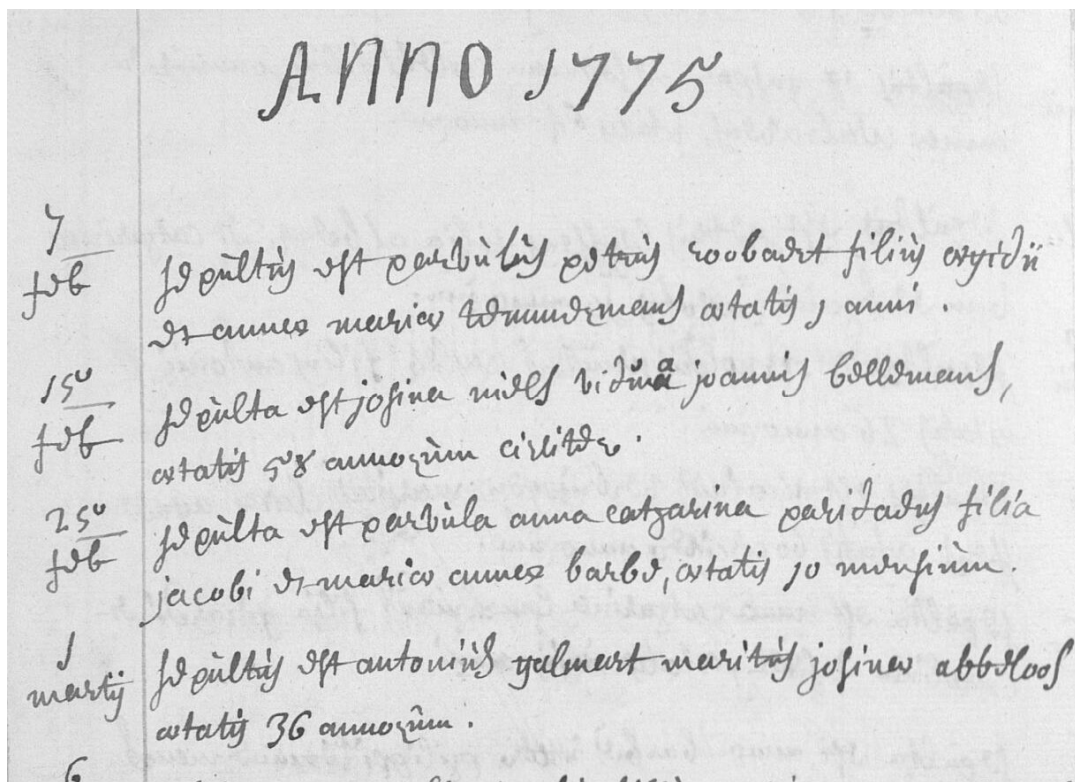 ANNO 1775
7
feb
sepultus est parvulus petrus roobaert filius egidii
et annae mariae temmermans aetatis 1 anni.
15
feb
sepulta est josina niels vidua joannis bellemans,
aetatis 58 annorum circiter.
25
feb
sepulta est parvula anna catharina paridaens filia
jacobi et mariae annae barbé, aetatis 10 mensium.
1
martij
sepultus est antonius galmart maritus josinae abbeloos
aetatis 36 annorum.
6